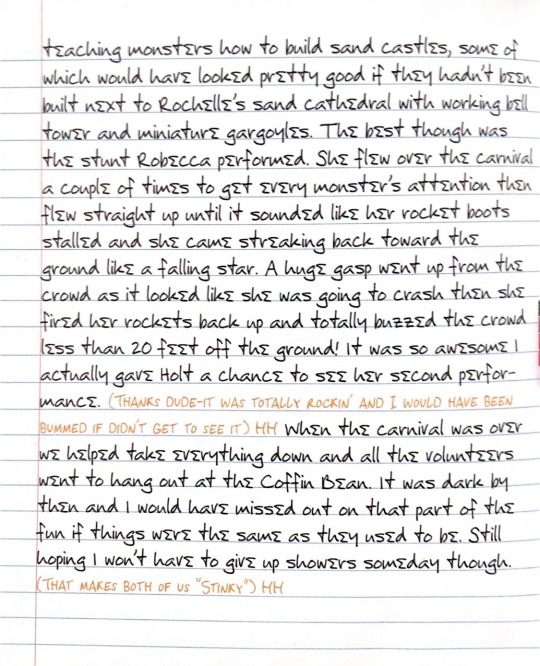 teaching monsters how to build sand castles, some of
which would have looked pretty good if they hadn't been
built next to Rochelle's sand cathedral with working bell
tower and miniature gargoyles. The best though was
the stunt Robecca performed. She flew over the carnival
a couple of times to get every monster's attention then
flew straight up until it sounded like her rocket boots
stalled and she came streaking back toward the
ground like a falling star. A huge gasp went up from the
crowd as it looked like she was going to crash then she
fired her rockets back up and totally buzzed the crowd
less than 20 feet off the ground! It was so awesome I
actually gave Holt a chance to see her second perfor-
mance. (THANKS DUDE-IT WAS TOTALLY ROCKIN' AND I WOULD HAVE BEEN
BUMMED IF DIDN'T GET TO SEE IT) HH When the carnival was over
we helped take everything down and all the volunteers
went to hang out at the Coffin Bean. It was dark by
then and I would have missed out on that part of the
fun if things were the same as they used to be. Still
hoping I won't have to give up showers someday though.
(THAT MAKES BOTH OF US "STINKY") HH